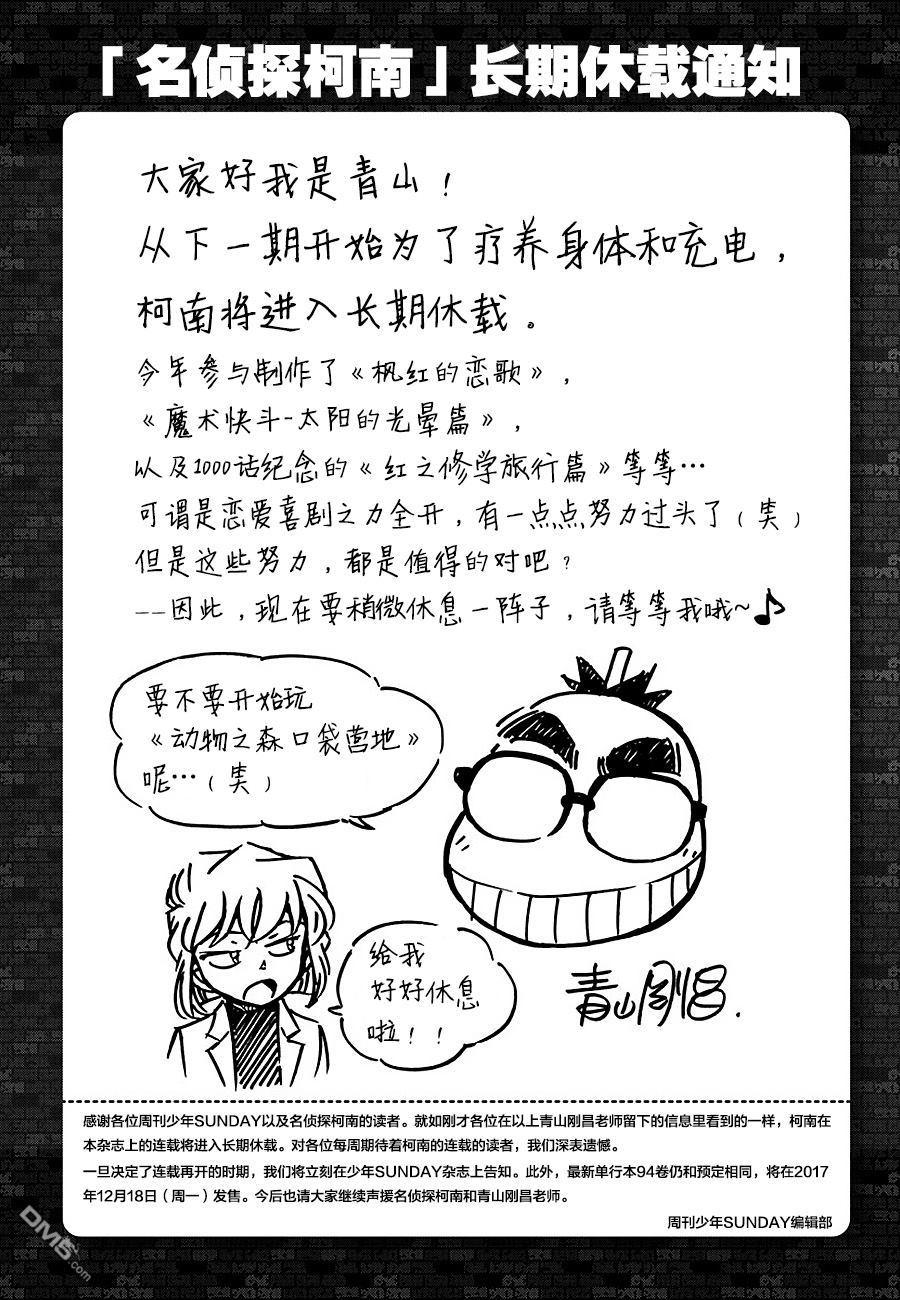 「名侦探柯南」长期休载通知
大家好我是青山！
从下一期开始为了疗养身体和充电，
柯南将进入长期休载。
今年参与制作了《枫红的恋歌》，
《魔术快斗-太阳的光晕篇》，
以及1000话纪念的《红之修学旅行篇》等等…
可谓是恋爱喜剧之力全开，有一点点努力过头了（笑）
但是这些努力，都是值得的对吧？
——因此，现在要稍微休息一阵子，请等等我哦~♪
要不要开始玩
《动物之森口袋营地》
呢…（笑）
给我
好好休息
啦！！
青山刚昌.
感谢各位周刊少年SUNDAY以及名侦探柯南的读者。就如刚才各位在以上青山刚昌老师留下的信息里看到的一样，柯南在
本杂志上的连载将进入长期休载。对各位每周期待着柯南的连载的读者，我们深表遗憾。
一旦决定了连载再开的时期，我们将立刻在少年SUNDAY杂志上告知。此外，最新单行本94卷仍和预定相同，将在2017
年12月18日（周一）发售。今后也请大家继续声援名侦探柯南和青山刚昌老师。
周刊少年SUNDAY编辑部
DM5.com